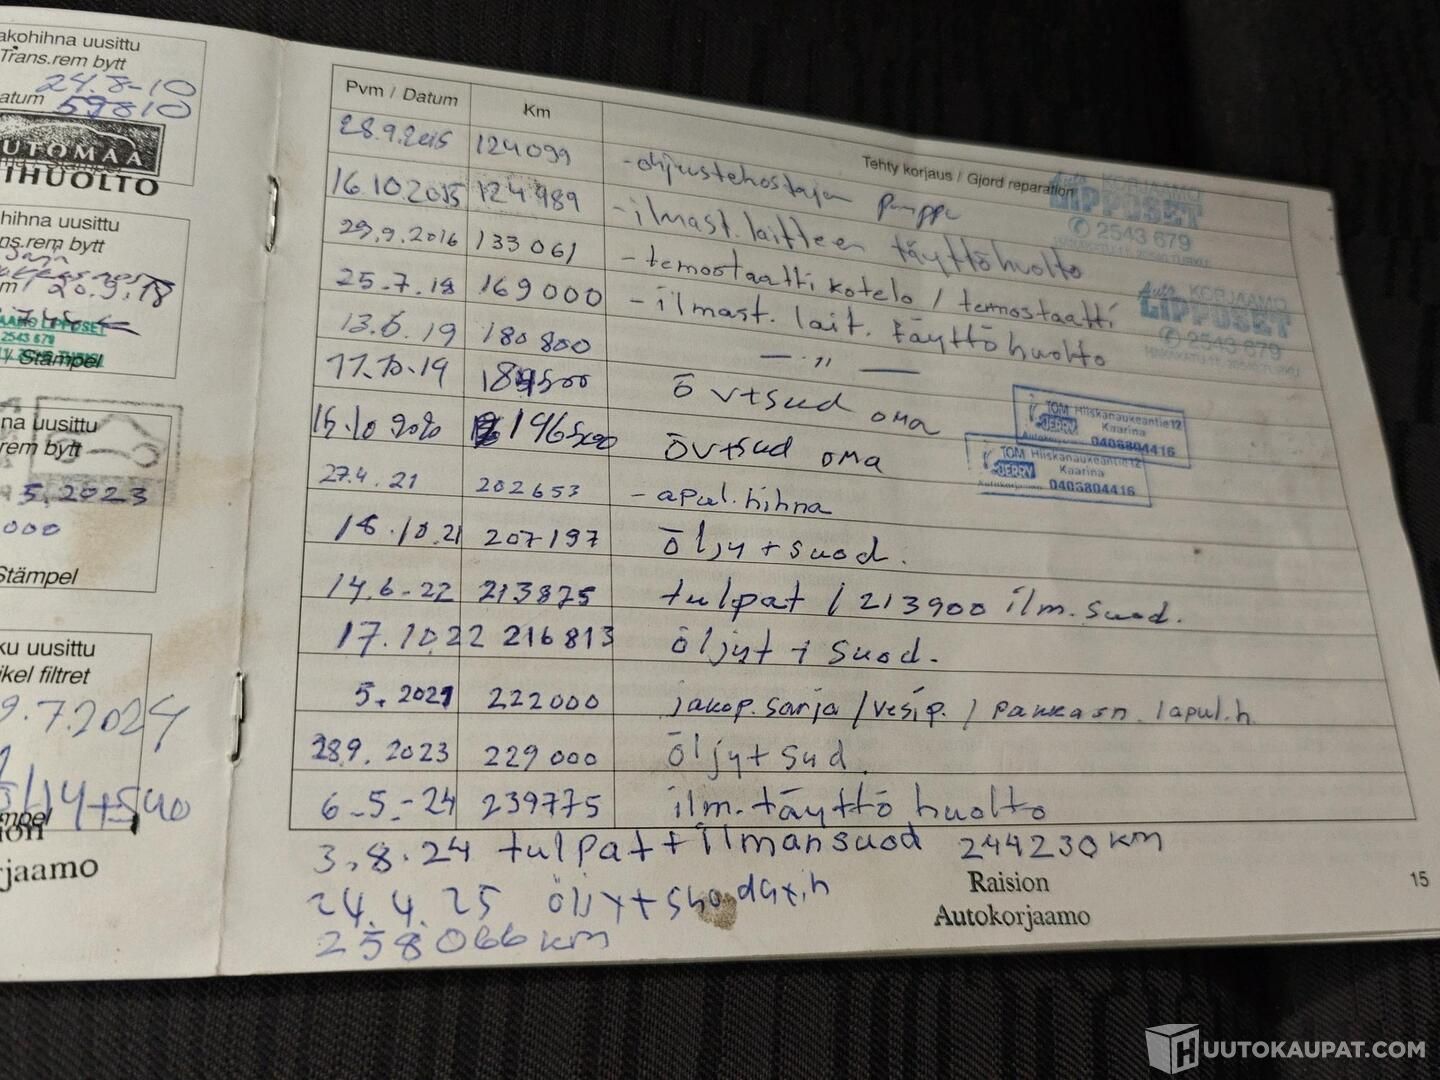 akohihna uusittu
Trans.rem bytt
24.8-10
atum 59810
UTOMAA
IHUOLTO
hihna uusittu
ns.rem bytt
20.9.18
AAMO LIPPOSET
2543 679
/ Stämpel
na uusittu
rem bytt
5.2023
000
Stämpel
ku uusittu
ikel filtret
9.7.2024
mpel
jaamo
Pvm / Datum Km Tehty korjaus / Gjord reparation
28.9.2015 124099 - ohjustehostajan pumppu
16.10.2015 124989 - ilmast.laitteen täyttöhuolto
Auto KORJAAMO
LIPPOSET
2543 679
29.9.2016 133061 - temostaatti kotelo / temostaatti
25.7.18 169000 - ilmast. lait. täyttöhuolto
Auto KORJAAMO
LIPPOSET
2543 679
13.6.19 180800 — ,, —
17.10.19 184500 öv+sud oma
15.10 2020 196500 öv+sud oma
TOM Hiiskanaukeantie 12
JERRY Kaarina
0403804416
TOM Hiiskanaukeantie 12
JERRY Kaarina
Autokorjaamo 0403804416
27.4.21 202653 - apul.hihna
18.10.21 207197 öljy+suod.
14.6-22 213875 tulpat / 213900 ilm.suod.
17.10.22 216813 öljyt + suod.
222000 jakop.sarja /vesip. /
28.9.2023 229000 öljy+sud.
6.5.-24 239775 ilm.täyttö huolto
3.8.24 tulpat+ilmansuod 244230 km
24.4.25
258066 km
Raision
Autokorjaamo
15
HUUTOKAUPAT.COM